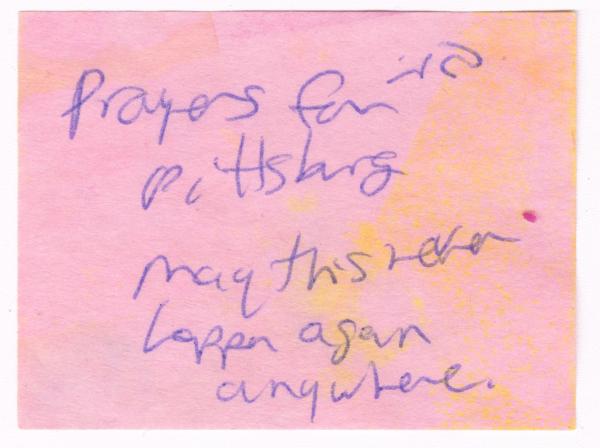 Prayers for
Pittsburg
may this never
happen again
anywhere.